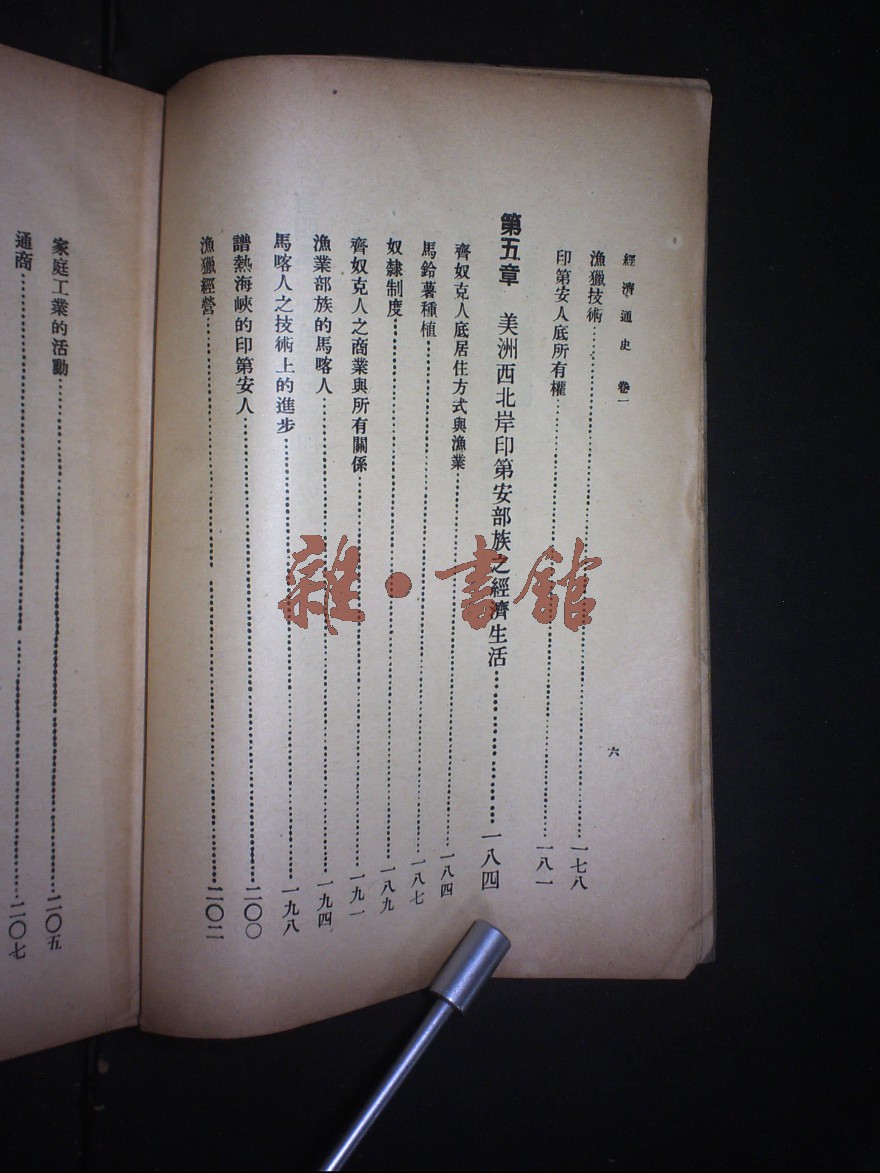 經濟通史 卷一
六
漁獵技術……一七八
印第安人底所有權……一八一
第五章 美洲西北岸印第安部族之經濟生活……一八四
齊奴克人底居住方式與漁業……一八四
馬鈴薯種植……一八七
奴隸制度……一八九
齊奴克人之商業與所有關係……一九一
漁業部族的馬喀人……一九四
馬喀人之技術上的進步……一九八
譜熱海峽的印第安人……二〇〇
漁獵經營……二〇二
家庭工業的活動……二〇五
通商……二〇七
雜·書館